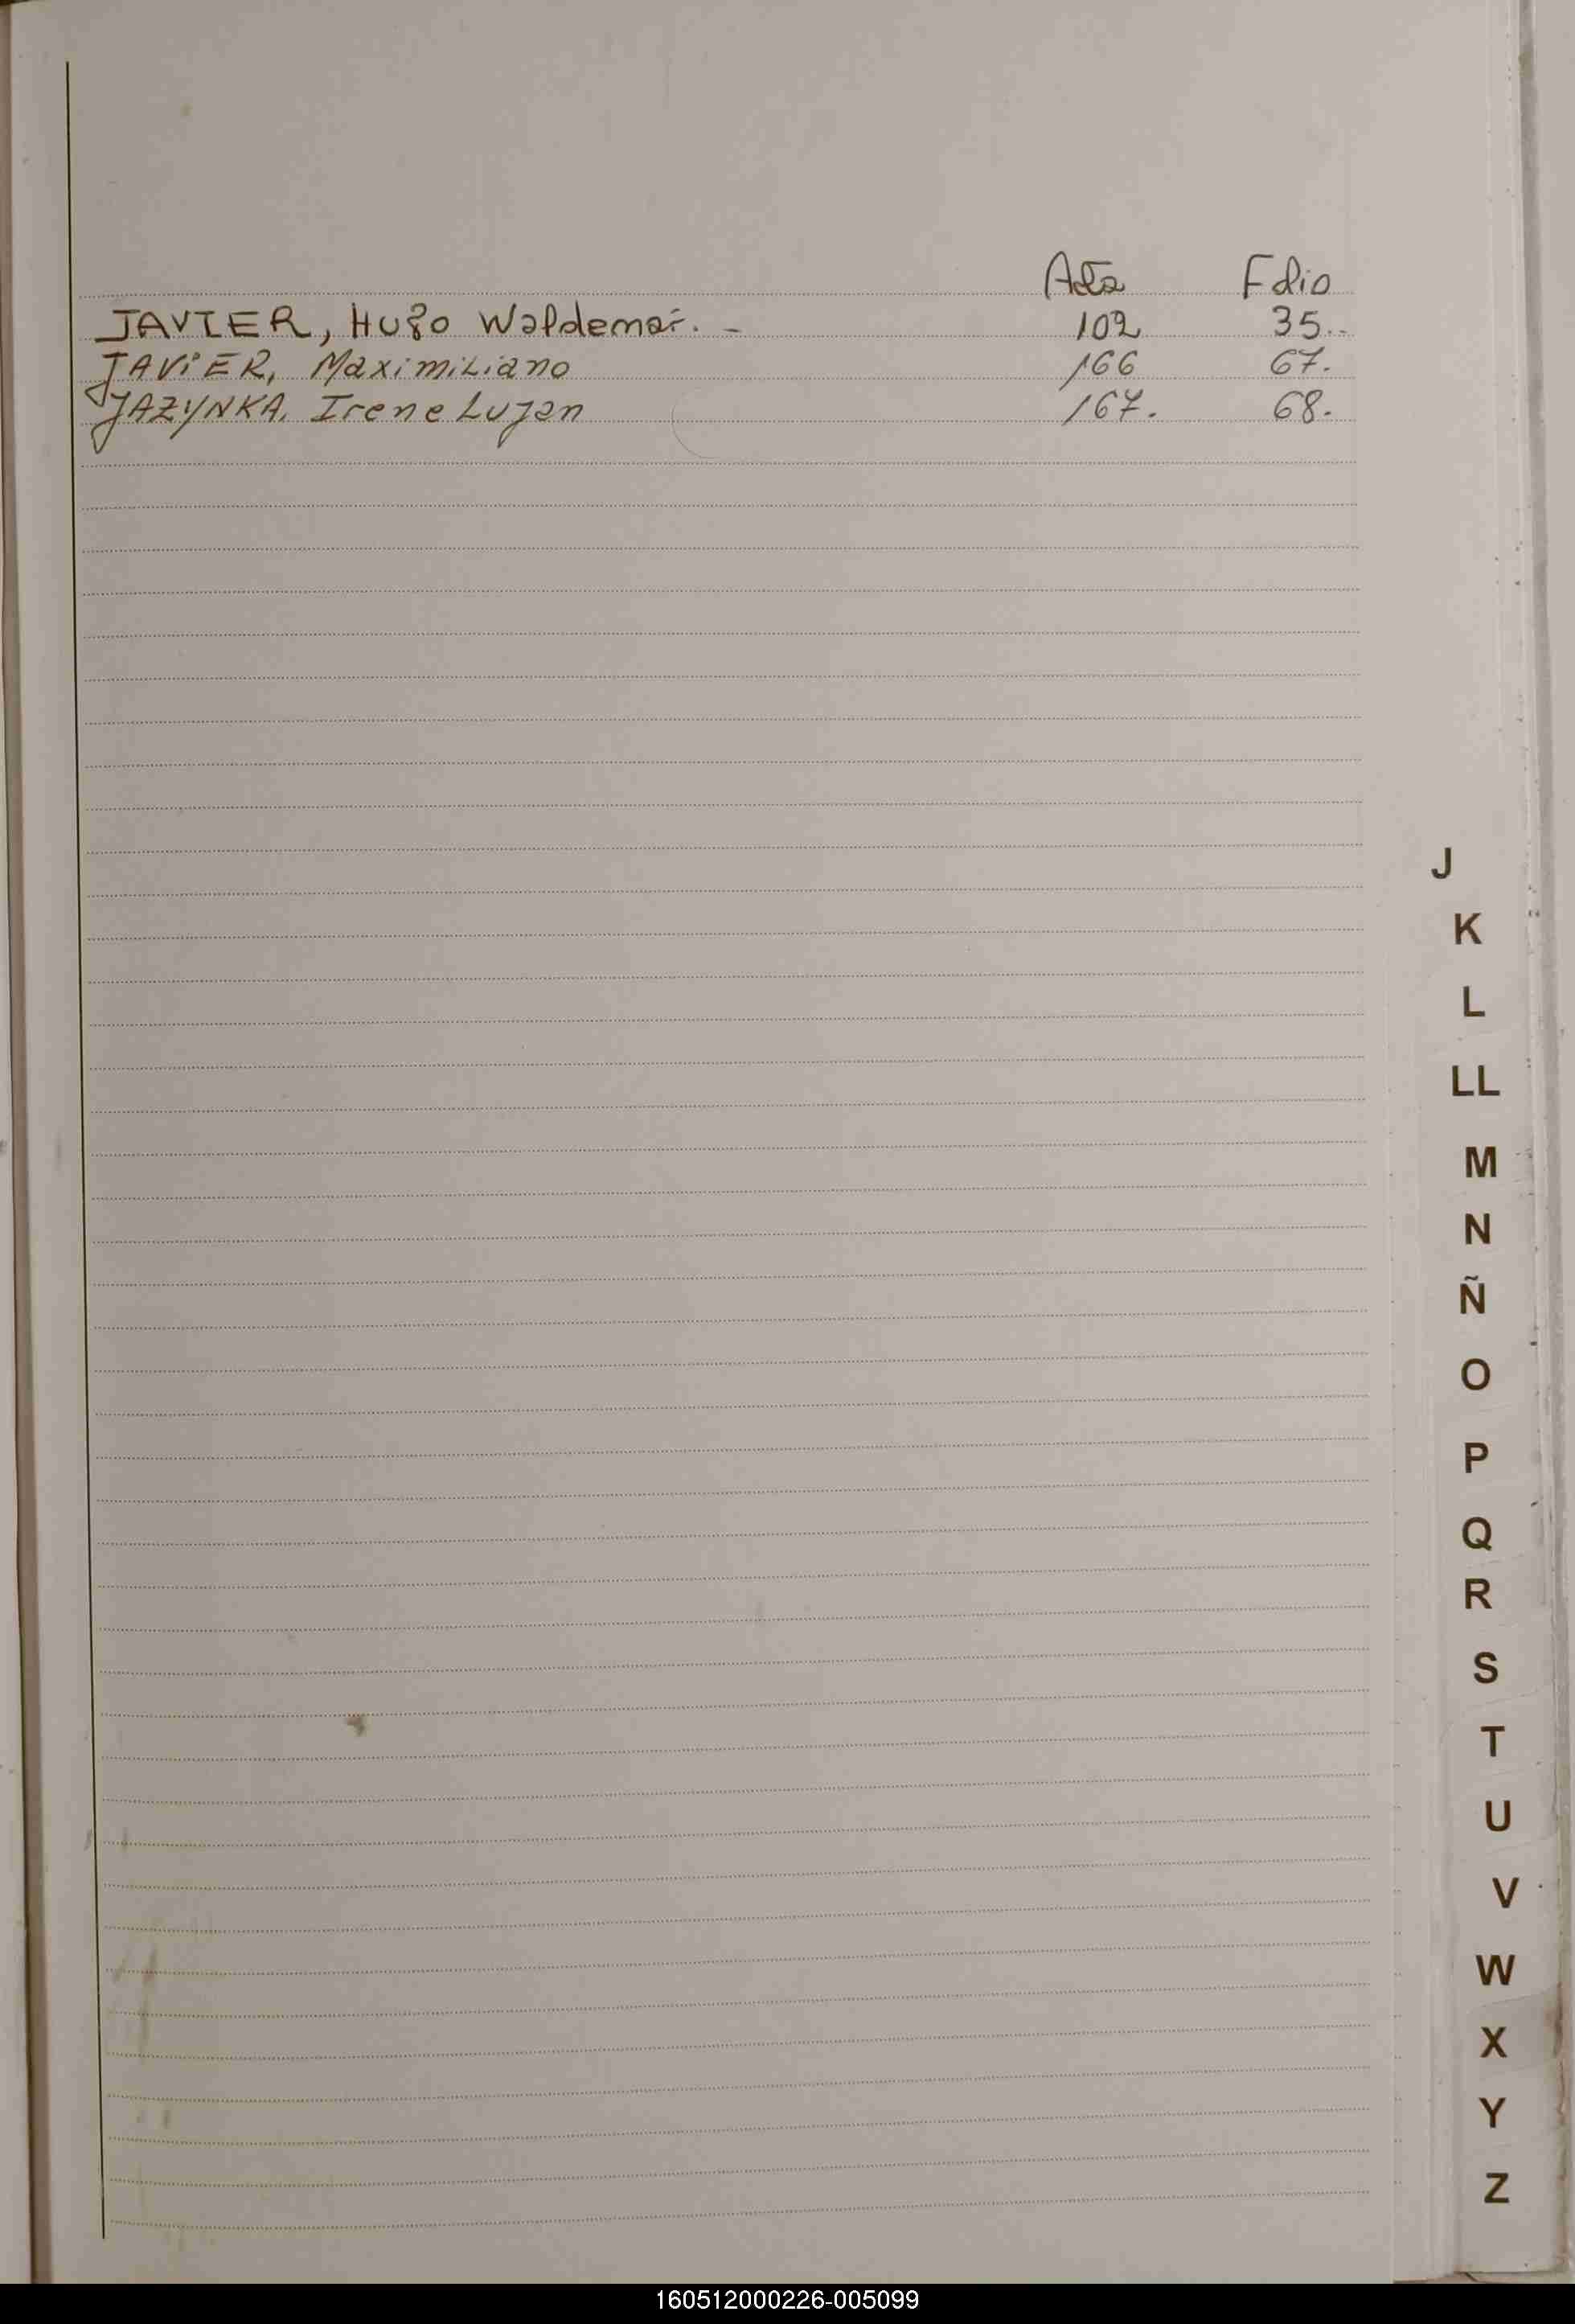 Acta Folio
JAVIER, Hugo Waldemar. - 102 35..
JAViER, Maximiliano 166 67.
JAZYNKA, Irene Lujan 167. 68.
J
K
L
LL
M
N
Ñ
O
P
Q
R
S
T
U
V
W
X
Y
Z
160512000226-005099